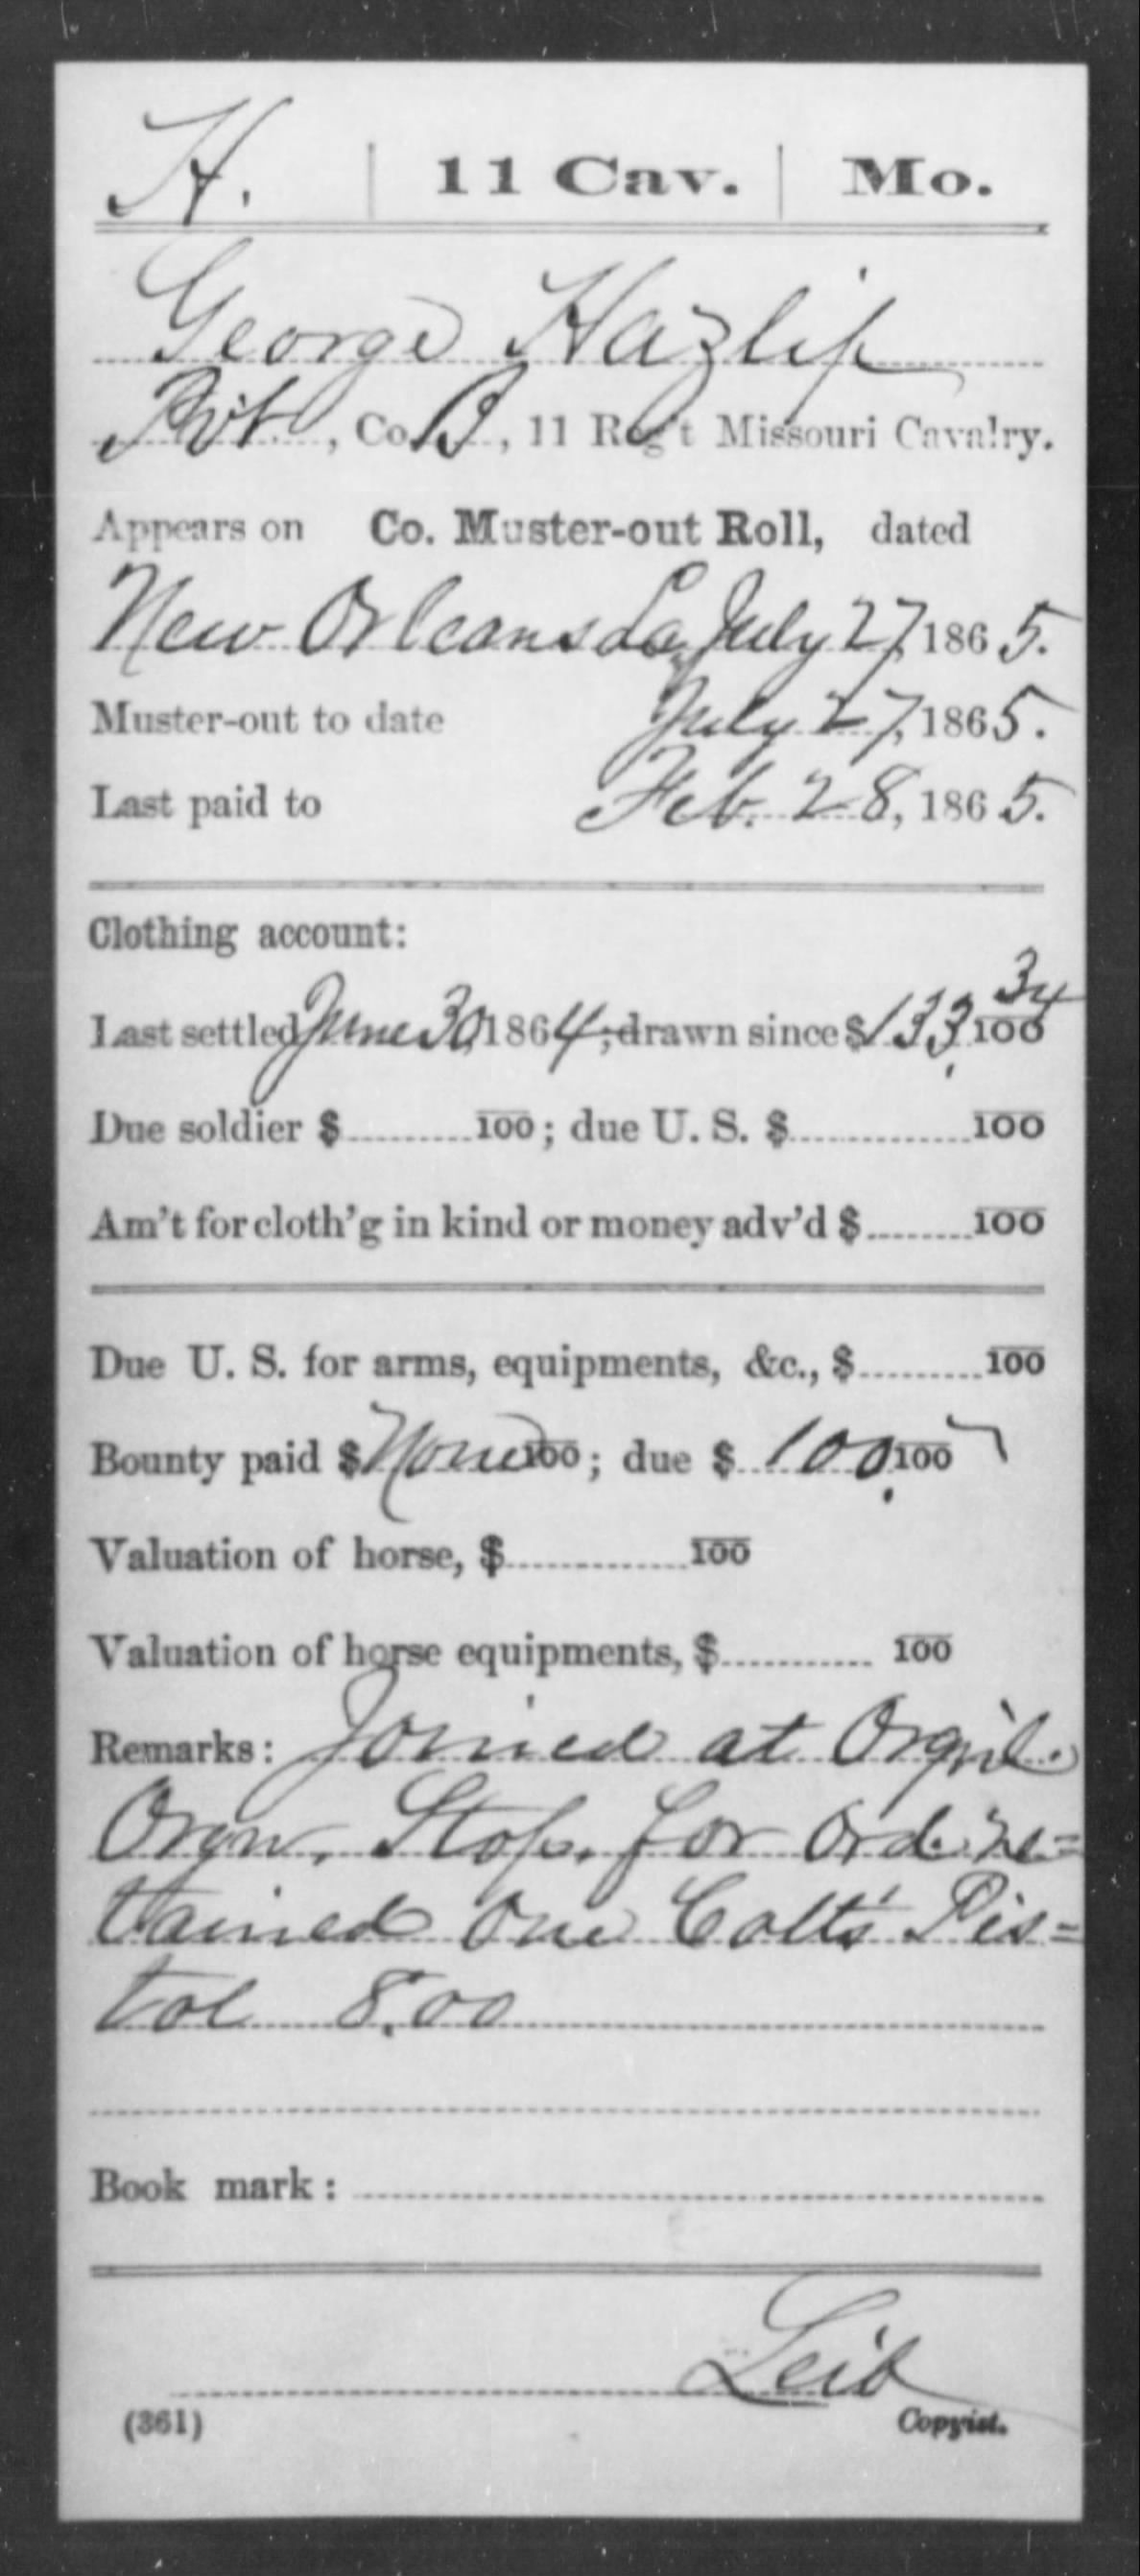 H. | 11 Cav. | Mo.
George Hazlip
Pvt, Co. B, 11 Reg't Missouri Cavalry.
Appears on Co. Muster-out Roll, dated
New Orleans La, July 27, 1865.
Muster-out to date July 27, 1865.
Last paid to Feb. 28, 1865.
Clothing account:
Last settled June 30, 1864; drawn since $133 34/100
Due soldier $ 100; due U. S. $ 100
Am't for cloth'g in kind or money adv'd $ 100
Due U. S. for arms, equipments, &c., $ 100
Bounty paid $ None 100; due $ 100 100
Valuation of horse, $ 100
Valuation of horse equipments, $ 100
Remarks: Joined at Orgnl.
Orgn. Stop. for Ord. re=
tained One Colt's Pis=
tol 8.00
Book mark:
Leib
(361) Copyist.